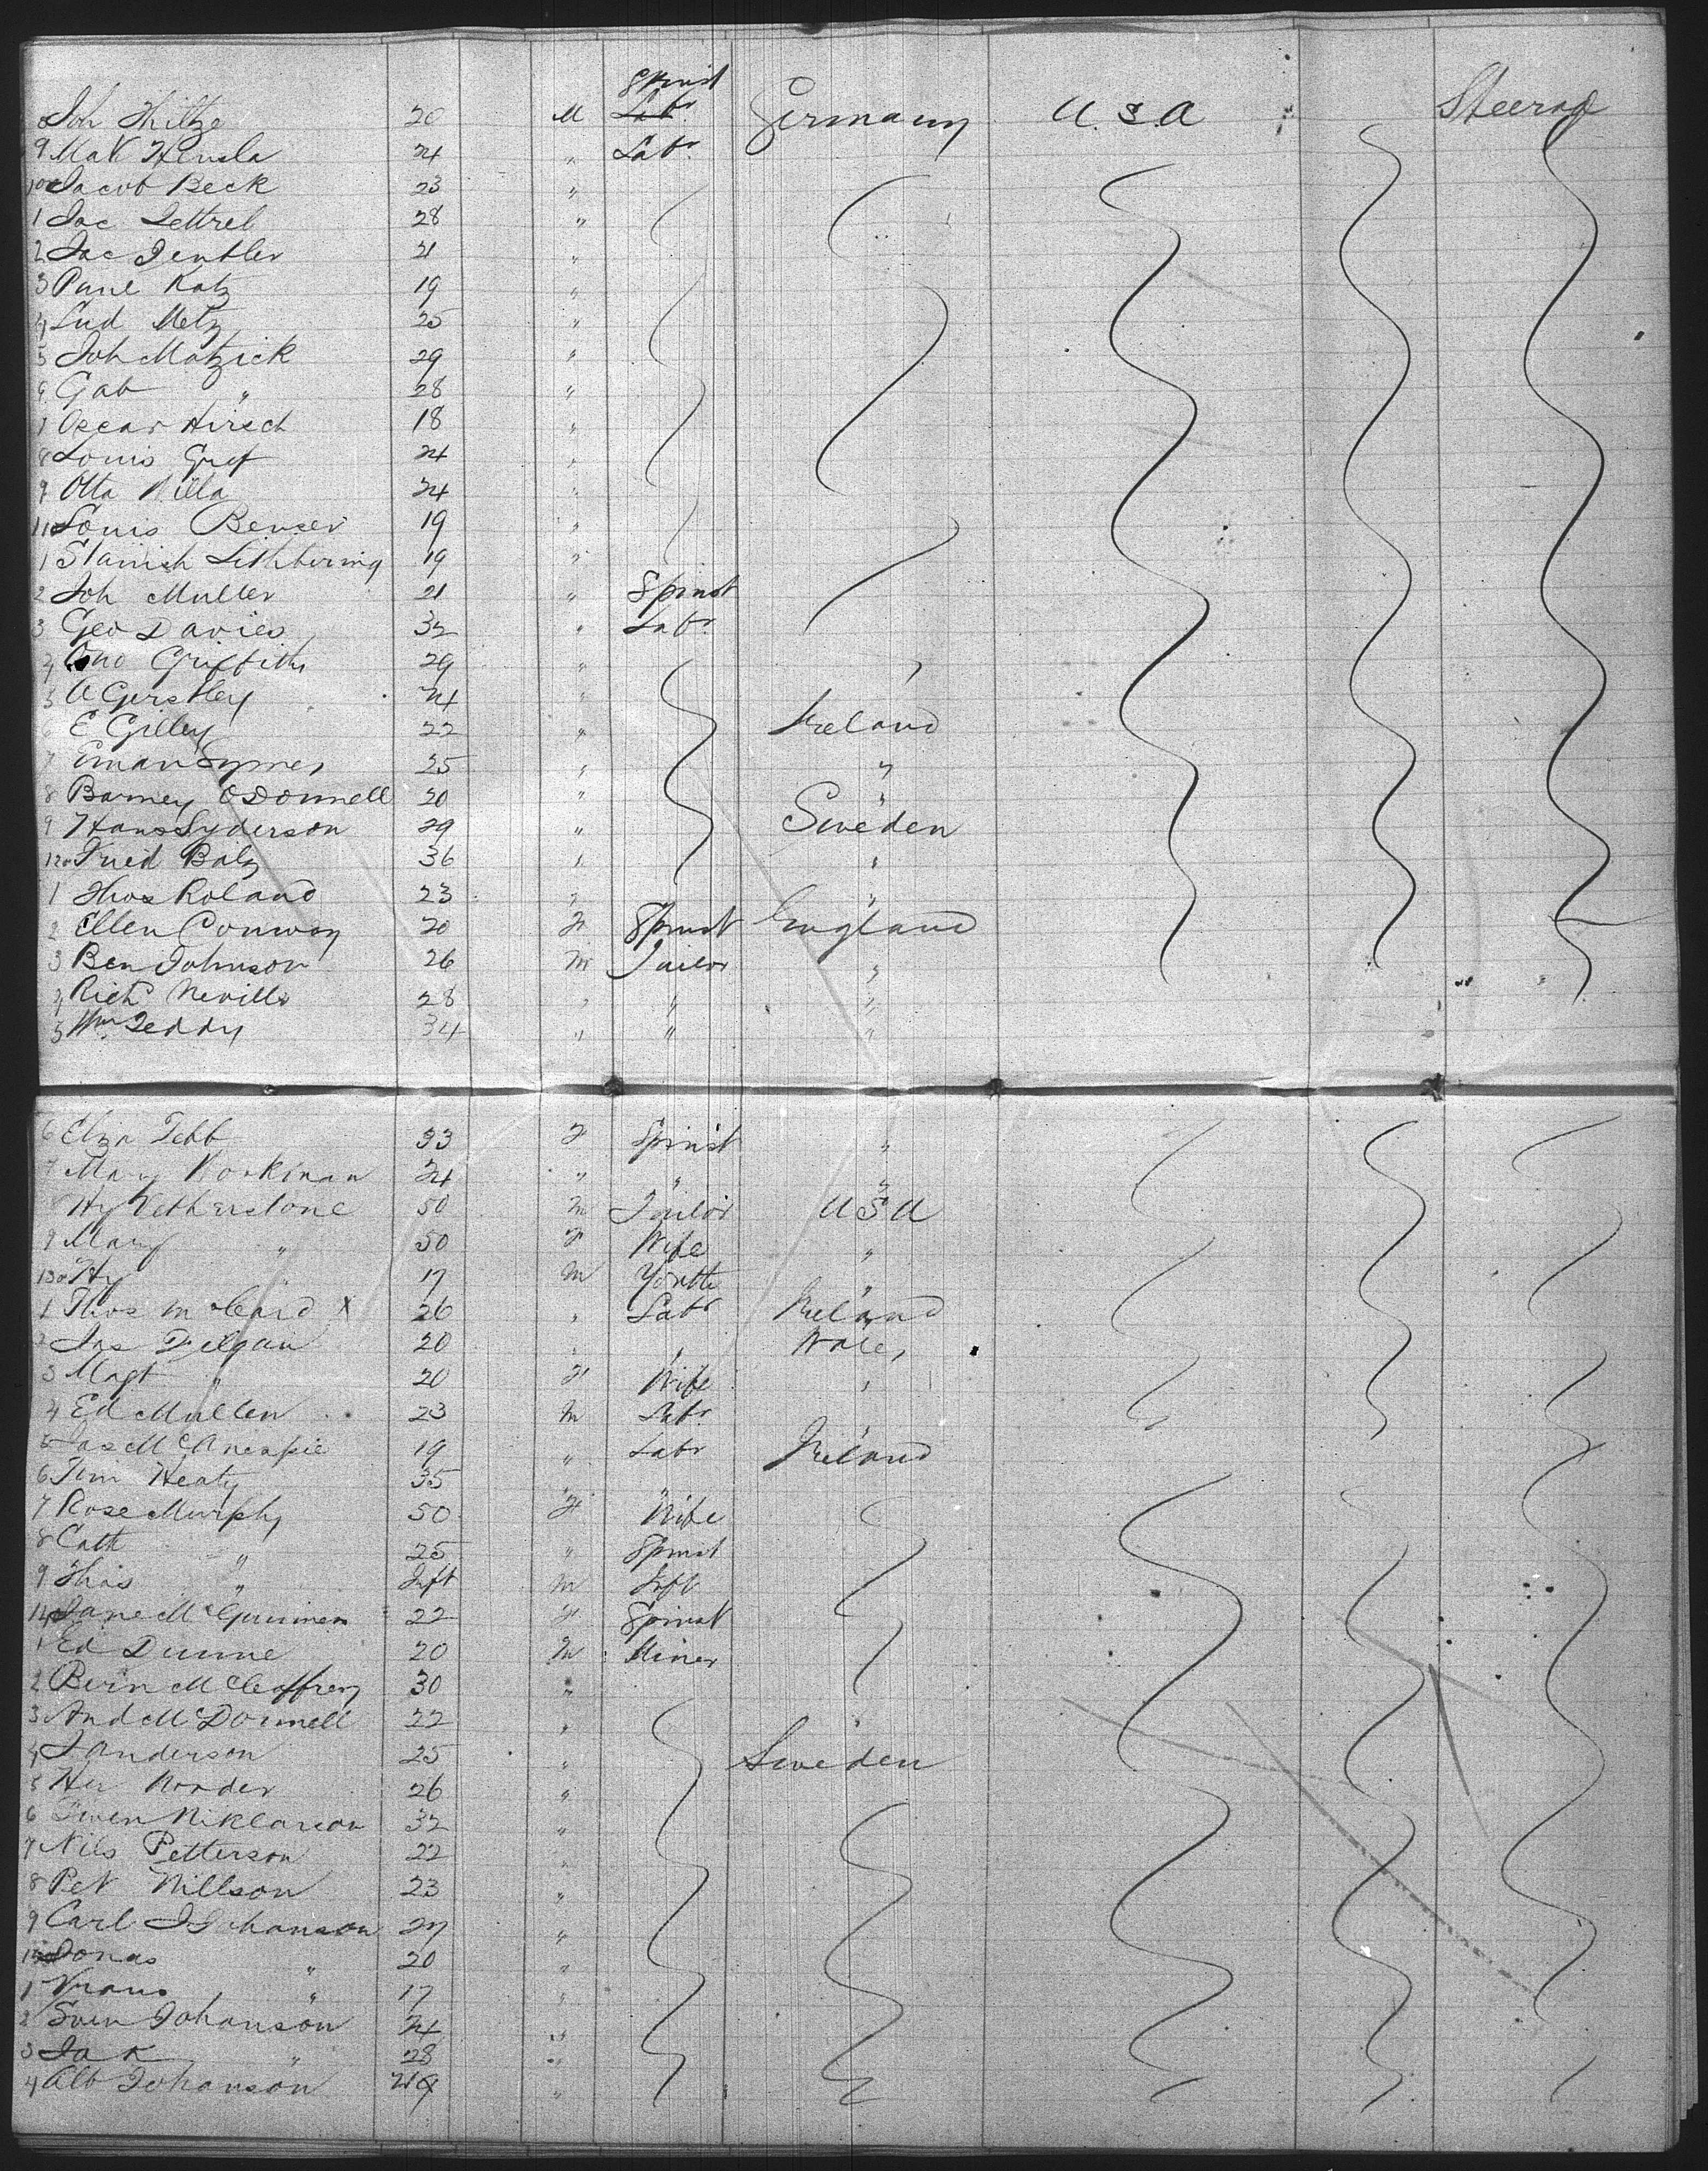 Spinst
Joh Hiltze 20 M Labr Germany U.S.A Steerage
9 Mat Hensla 24 " Labr
Jacob Beck 23 "
1 Jac Lettrel 28 "
2 Jac Jentler 21 "
3 Paul Katz 19 "
4 Lud Metz 25 "
5 Joh Matzick 29 "
6 Gab " 28 "
7 Oscar Hirsch 18 "
8 Louis Gref 24 "
9 Otto Milla 24 "
110 Louis Benser 19 "
1 Stanish Lithbering 19 "
2 Joh Muller 21 " Spinst
3 Geo Davies 32 " Labr
4 Griffiths 29 "
5 A Gerstley 24 "
6 E Gilley 22 " Ireland
7 Eman Symes 25 " "
8 Barney O'Donnell 20 " "
9 Hans Syderson 29 " Sweden
120 Fried Balz 36 " "
1 Thos Roland 23 " "
2 Ellen Conway 20 F Spinst England
3 Ben Johnson 26 M Tailor "
4 Rich Neville 28 " " "
5 Wm Leddy 34 " " "
6 Eliza Tebb 33 F Spinst "
7 Mary Workman 24 " " "
8 Hy Netherstone 50 M Tailor U S A
9 Mary " 50 F Wife "
130 Hy " 17 M Youth "
1 Thos X 26 " Labr Ireland
2 Jas Delgan 20 " " Wales
3 Magt " 20 F Wife "
4 Ed Mullen 23 M Labr "
5 Jas McAnespie 19 " Labr Ireland
6 Tim Heaty 35 " "
7 Rose Murphy 50 F Wife
8 Cath " 25 " Spinst
9 Thos " Inft M Inft
140 Jane McGuinnes 22 F Spinst
1 Ed Dunne 20 M Miner
2 Bern McCaffrey 30 "
3 And McDonnell 22 " "
4 J Anderson 25 " Sweden
5 Her Norder 26 "
6 Swen Niklarson 32 "
7 Nils Petterson 22 "
8 Pet Nillson 23 "
9 Carl J Johanson 24 "
150 Jonas " 20 "
1 Frans " 17 "
2 Sven Johanson 24 "
3 Jak " 28 "
4 Alb Johanson 19 "